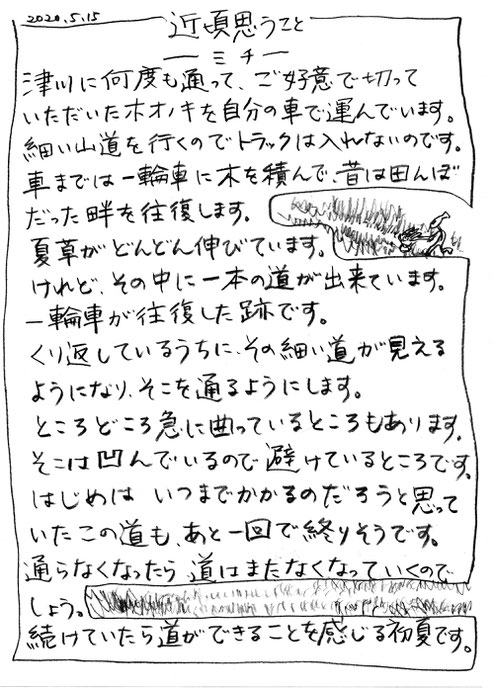 2020.5.15
近頃思うこと
ーミチー
津川に何度も通って、ご好意で切って
いただいたホオノキを自分の車で運んでいます。
細い山道を行くのでトラックは入れないのです。
車までは一輪車に木を積んで、昔は田んぼ
だった畔を往復します。
夏草がどんどん伸びています。
けれど、その中に一本の道が出来ています。
一輪車が往復した跡です。
くり返しているうちに、その細い道が見える
ようになり、そこを通るようにします。
ところどころ急に曲っているところもあります。
そこは凹んでいるので避けているところです。
はじめは いつまでかかるのだろうと思って
いたこの道も、あと一回で終りそうです。
通らなくなったら 道はまたなくなっていくので
しょう。
続けていたら道ができることを感じる初夏です。